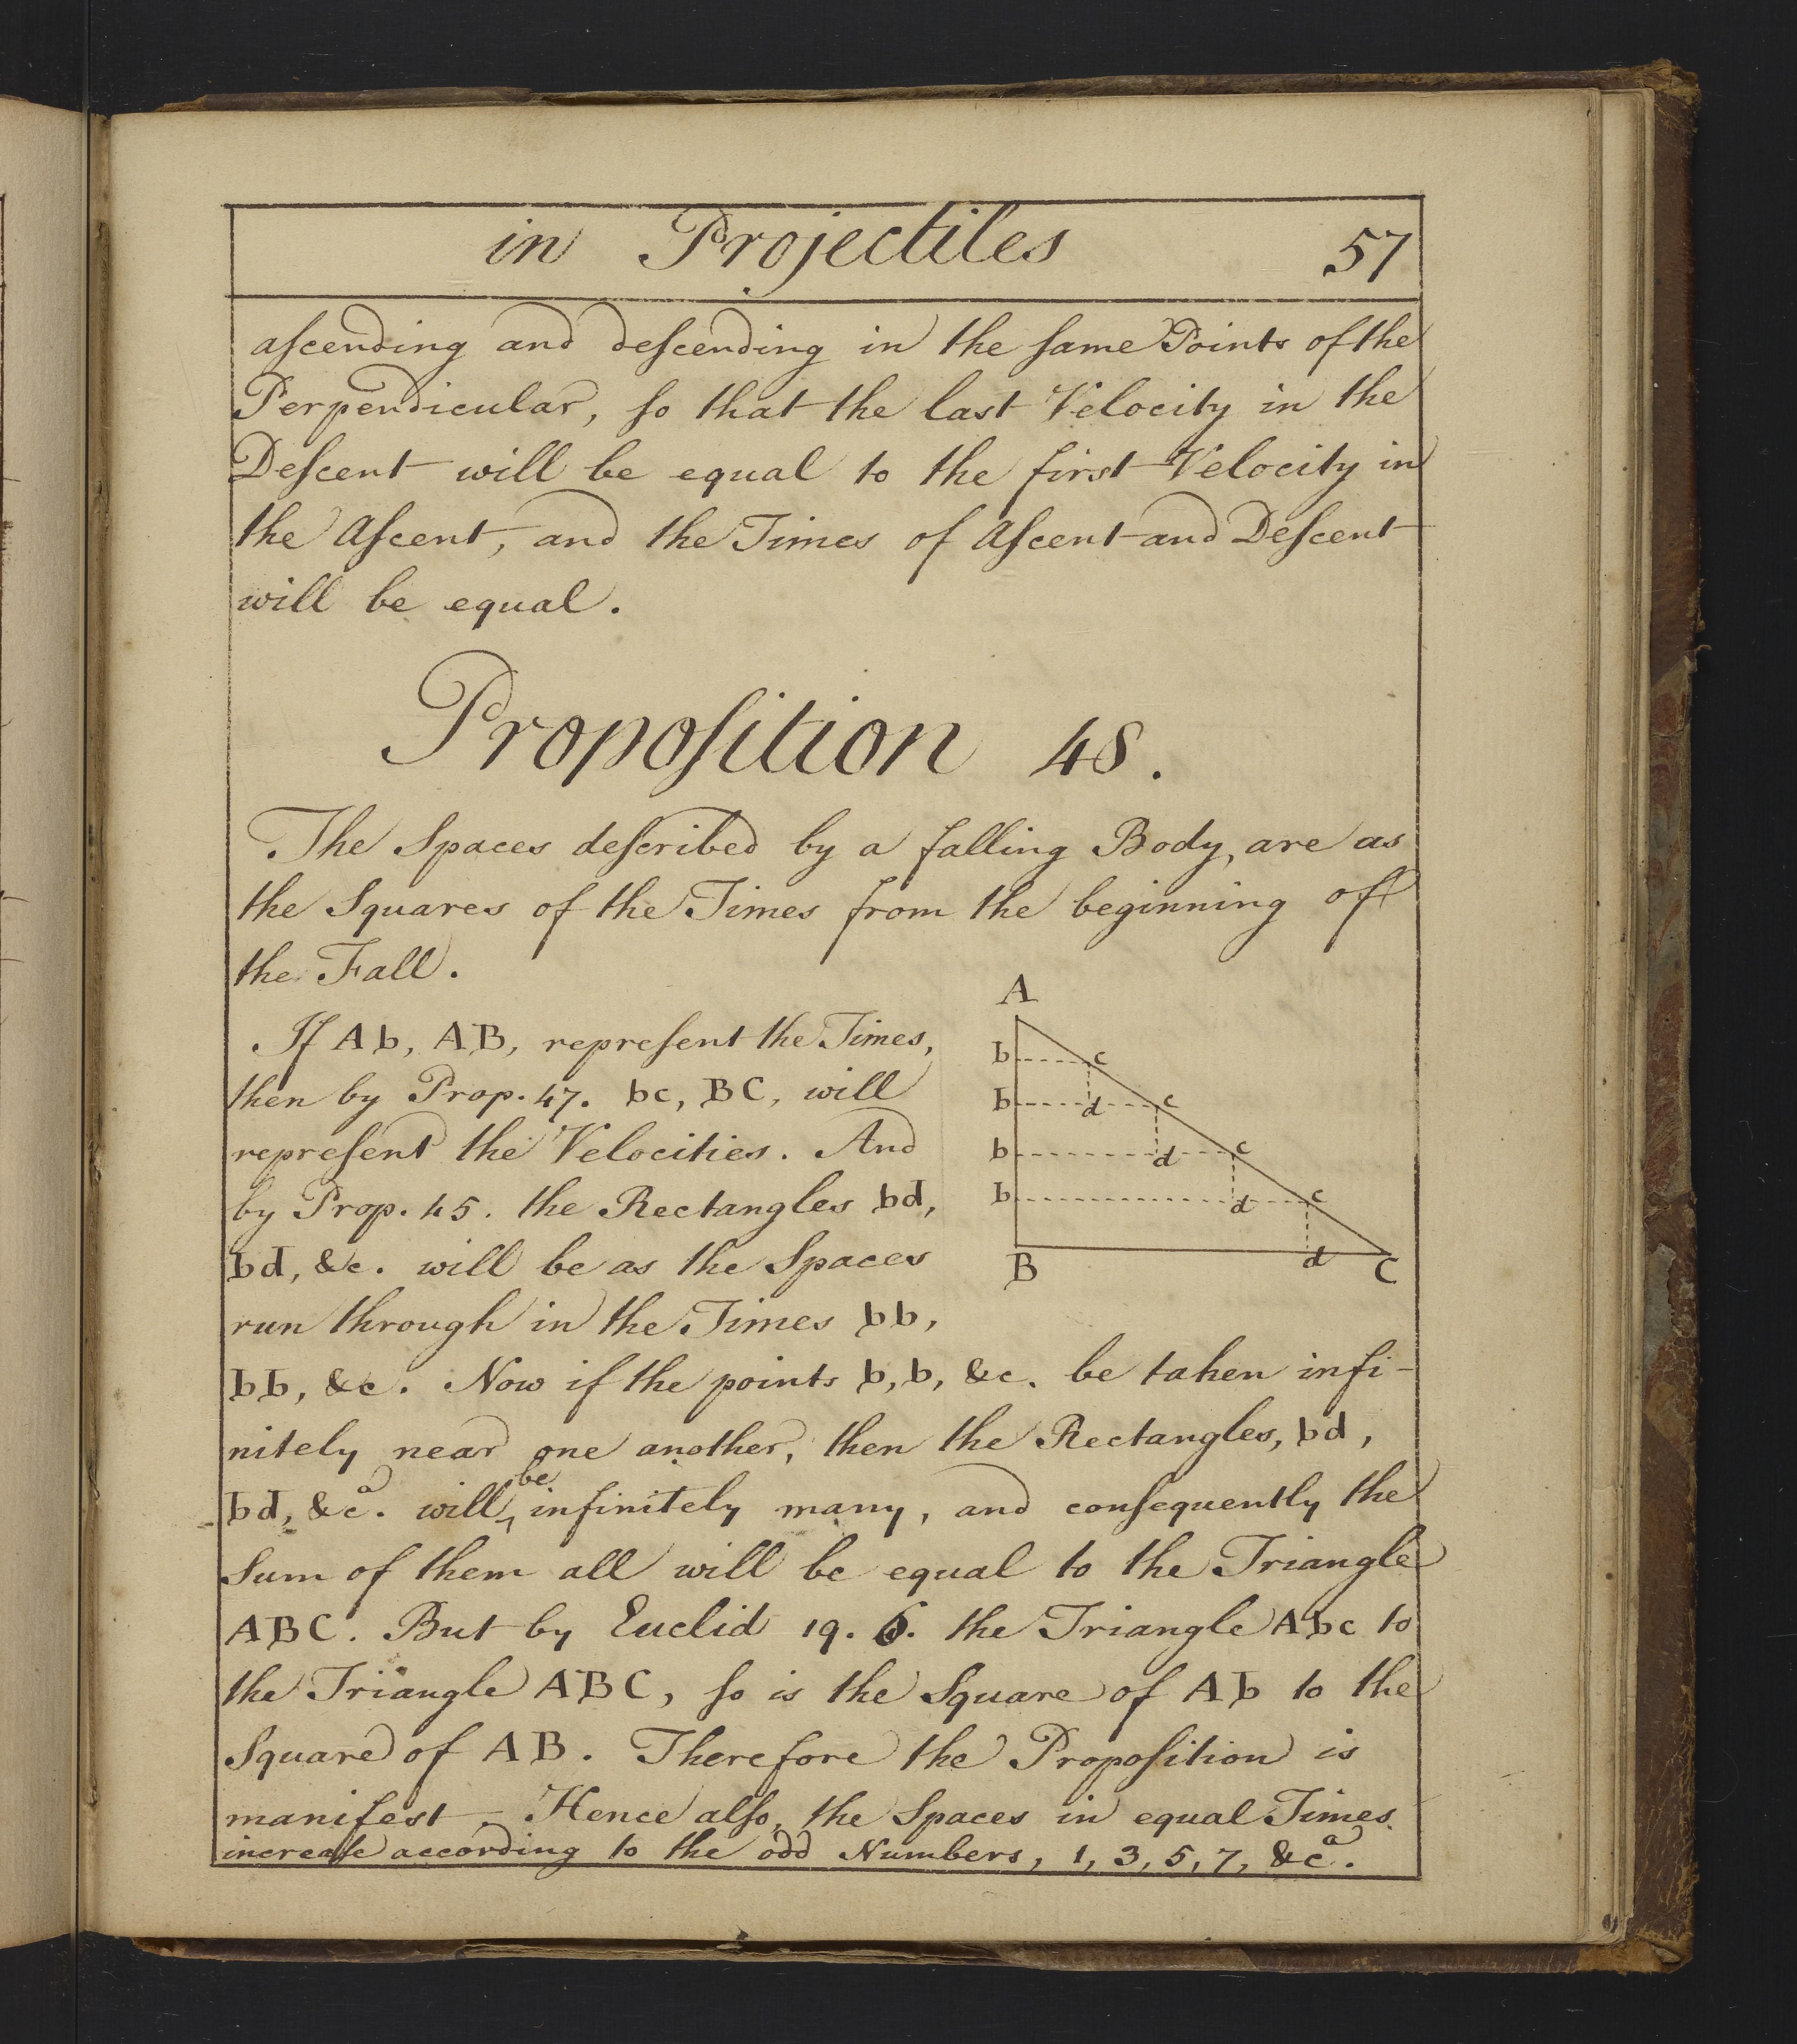 in Projectiles 57
aſcending and deſcending in the ſame Points of the
Perpendicular, ſo that the last Velocity in the
Deſcent will be equal to the first Velocity in
the Aſcent, and the Times of Aſcent and Deſcent
will be equal.
Propoſition 48.
The Spaces deſcribed by a falling Body, are as
the Squares of the Times from the beginning of
the Fall.
If Ab, AB, repreſent the Times,
then by Prop. 47. bc, BC, will
repreſent the Velocities. And
by Prop. 45. the Rectangles bd,
bd, &c. will be as the Spaces
run through in the Times bb,
A
b c
b d c
b d c
b d c
B d C
bb, &c. Now if the points b, b, &c. be taken infi-
nitely near one another, then the Rectangles, bd,
bd, &cª. will be infinitely many, and conſequently the
Sum of them all will be equal to the Triangle
ABC. But by Euclid 19. 6. the Triangle Abc to
the Triangle ABC, ſo is the Square of Ab to the
Square of AB. Therefore the Propoſition is
manifest. Hence alſo, the Spaces in equal Times
increaſe according to the odd Numbers, 1, 3, 5, 7, &cª.